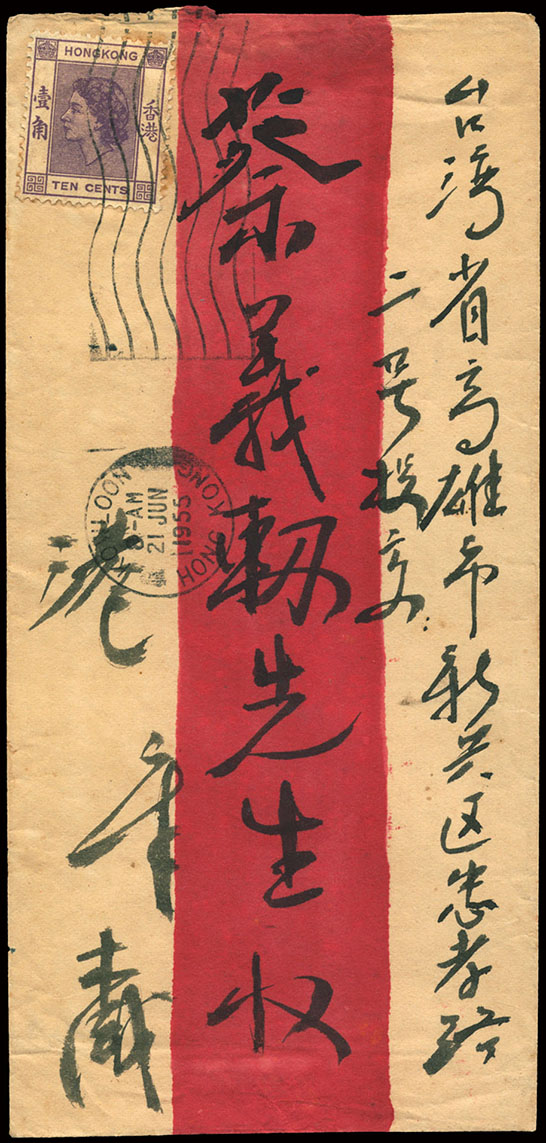 台湾省高雄市新兴区忠孝路
二号投交:
蔡義軔先生収
港
HONGKONG
香港
壹角
TEN CENTS
KOWLOON
-AM
21 JUN
1955
HONG KONG